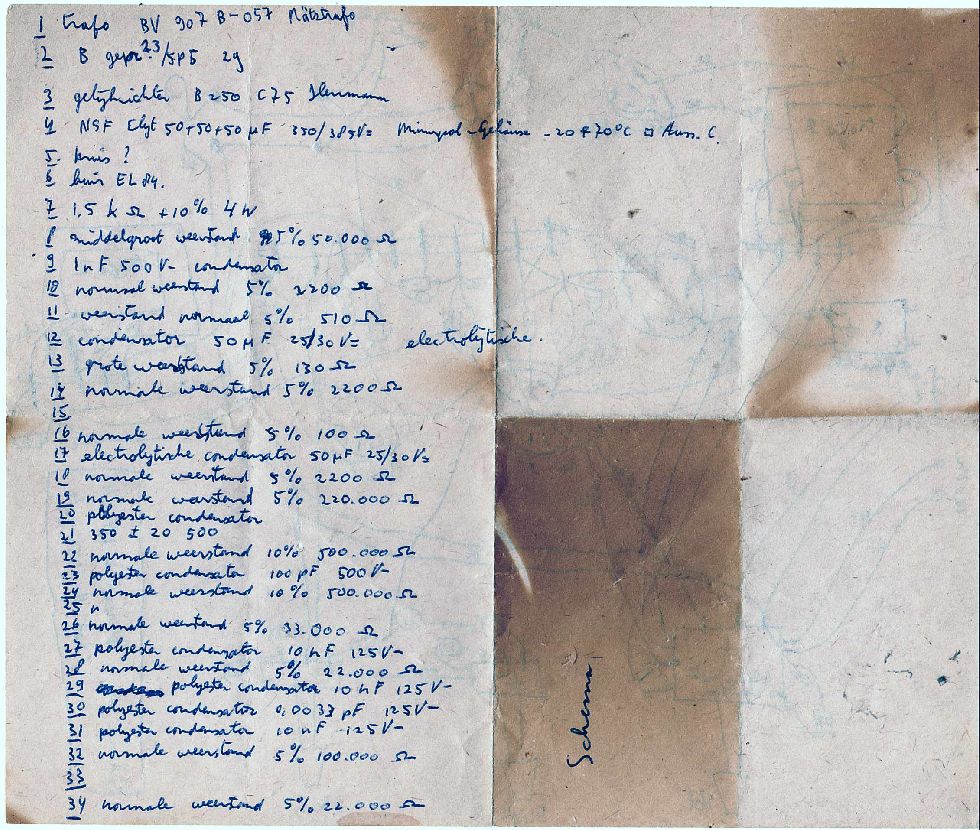 1 trafo BV 907 B-057 Nätztrafo
2 B gepr. 23/5p5 29
3 gelijkrichter B250 C75
4 NSF Elyt 50+50+50 µF 350/385V= Minipol-Gehäuse -20 +70°C Aus. C.
5. buis ?
6 buis EL 84.
7 1,5 k Ω +10% 4W
8 middelgroot weerstand 5% 50.000 Ω
9 1nF 500V- condensator
10 normaal weerstand 5% 2200 Ω
11 weerstand normaal 5% 510 Ω
12 condensator 50µF 25/30V= electrolytische.
13 grote weerstand 5% 130 Ω
14 normale weerstand 5% 2200 Ω
15
16 normale weerstand 5% 100 Ω
17 electrolytische condensator 50µF 25/30V=
18 normale weerstand 5% 2200 Ω
19 normale weerstand 5% 220.000 Ω
20 polyester condensator
21 350 ± 20 500
22 normale weerstand 10% 500.000 Ω
23 polyester condensator 100 pF 500V-
24 normale weerstand 10% 500.000 Ω
25 "
26 normale weerstand 5% 33.000 Ω
27 polyester condensator 10 nF 125V-
28 normale weerstand 5% 22.000 Ω
29 polyester condensator 10 nF 125V-
30 polyester condensator 0,0033 pF 125V-
31 polyester condensator 10 nF 125V-
32 normale weerstand 5% 100.000 Ω
33
34 normale weerstand 5% 22.000 Ω
Schema